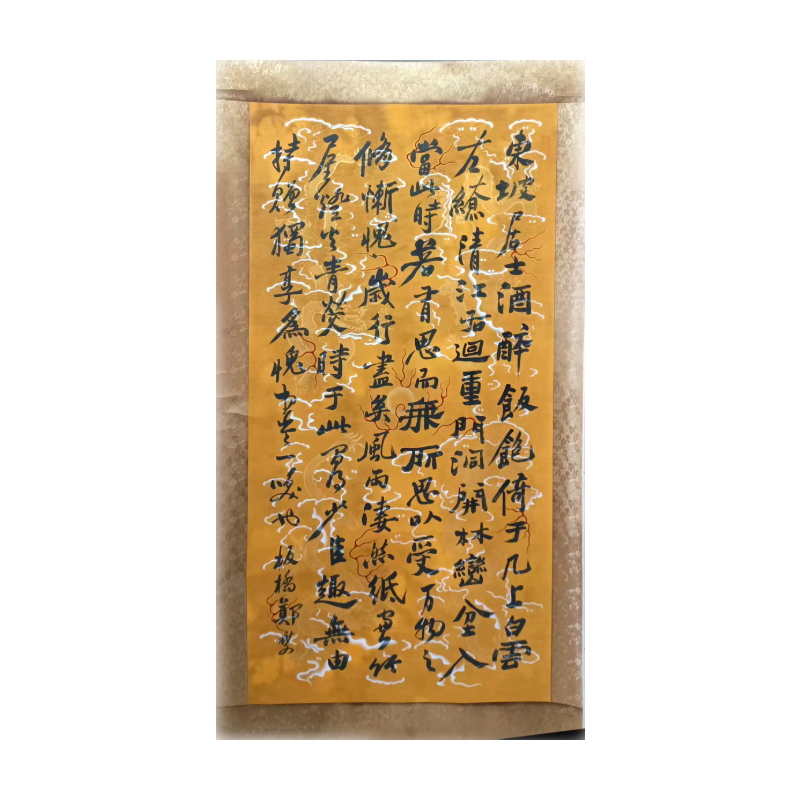 東坡居士酒醉飯飽倚于几上白雲
左繚清江右迴重門洞開林巒坌入
當此時若有思而無所思以受万物之
備慚愧歲行盡矣風雨淒然紙窗竹
屋燈火青熒時于此間得少佳趣無由
持贈獨享為愧書堂一笑也板橋鄭燮